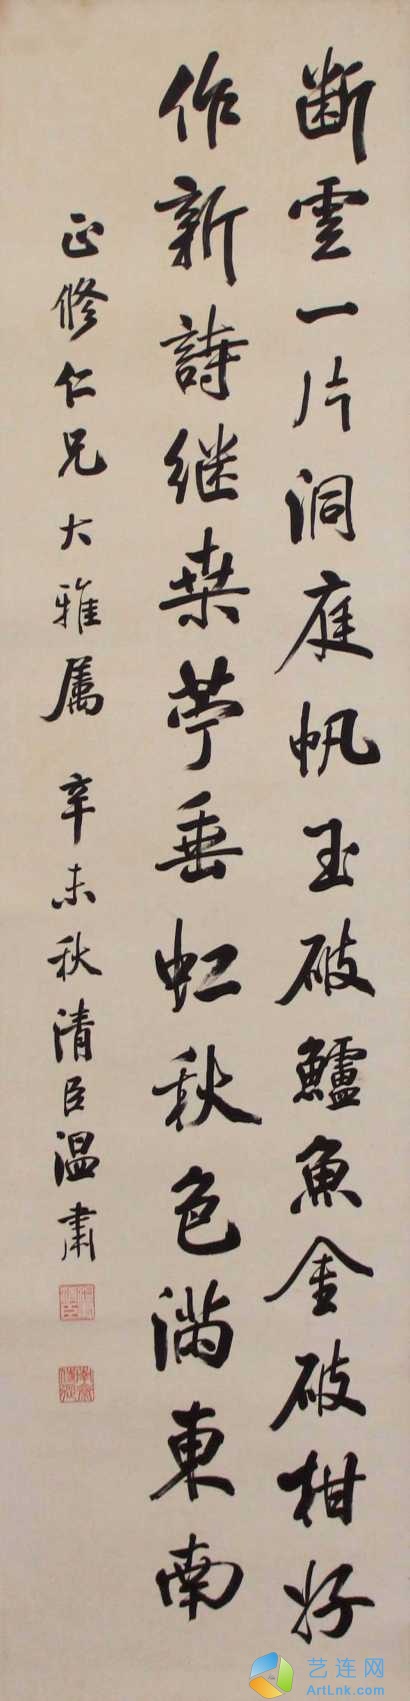 断雲一片洞庭帆玉破鱸魚金破柑好
作新詩继桒苧垂虹秋色满東南
正修仁兄大雅属 辛未秋清臣温肃
艺连网
ArtLnk.com